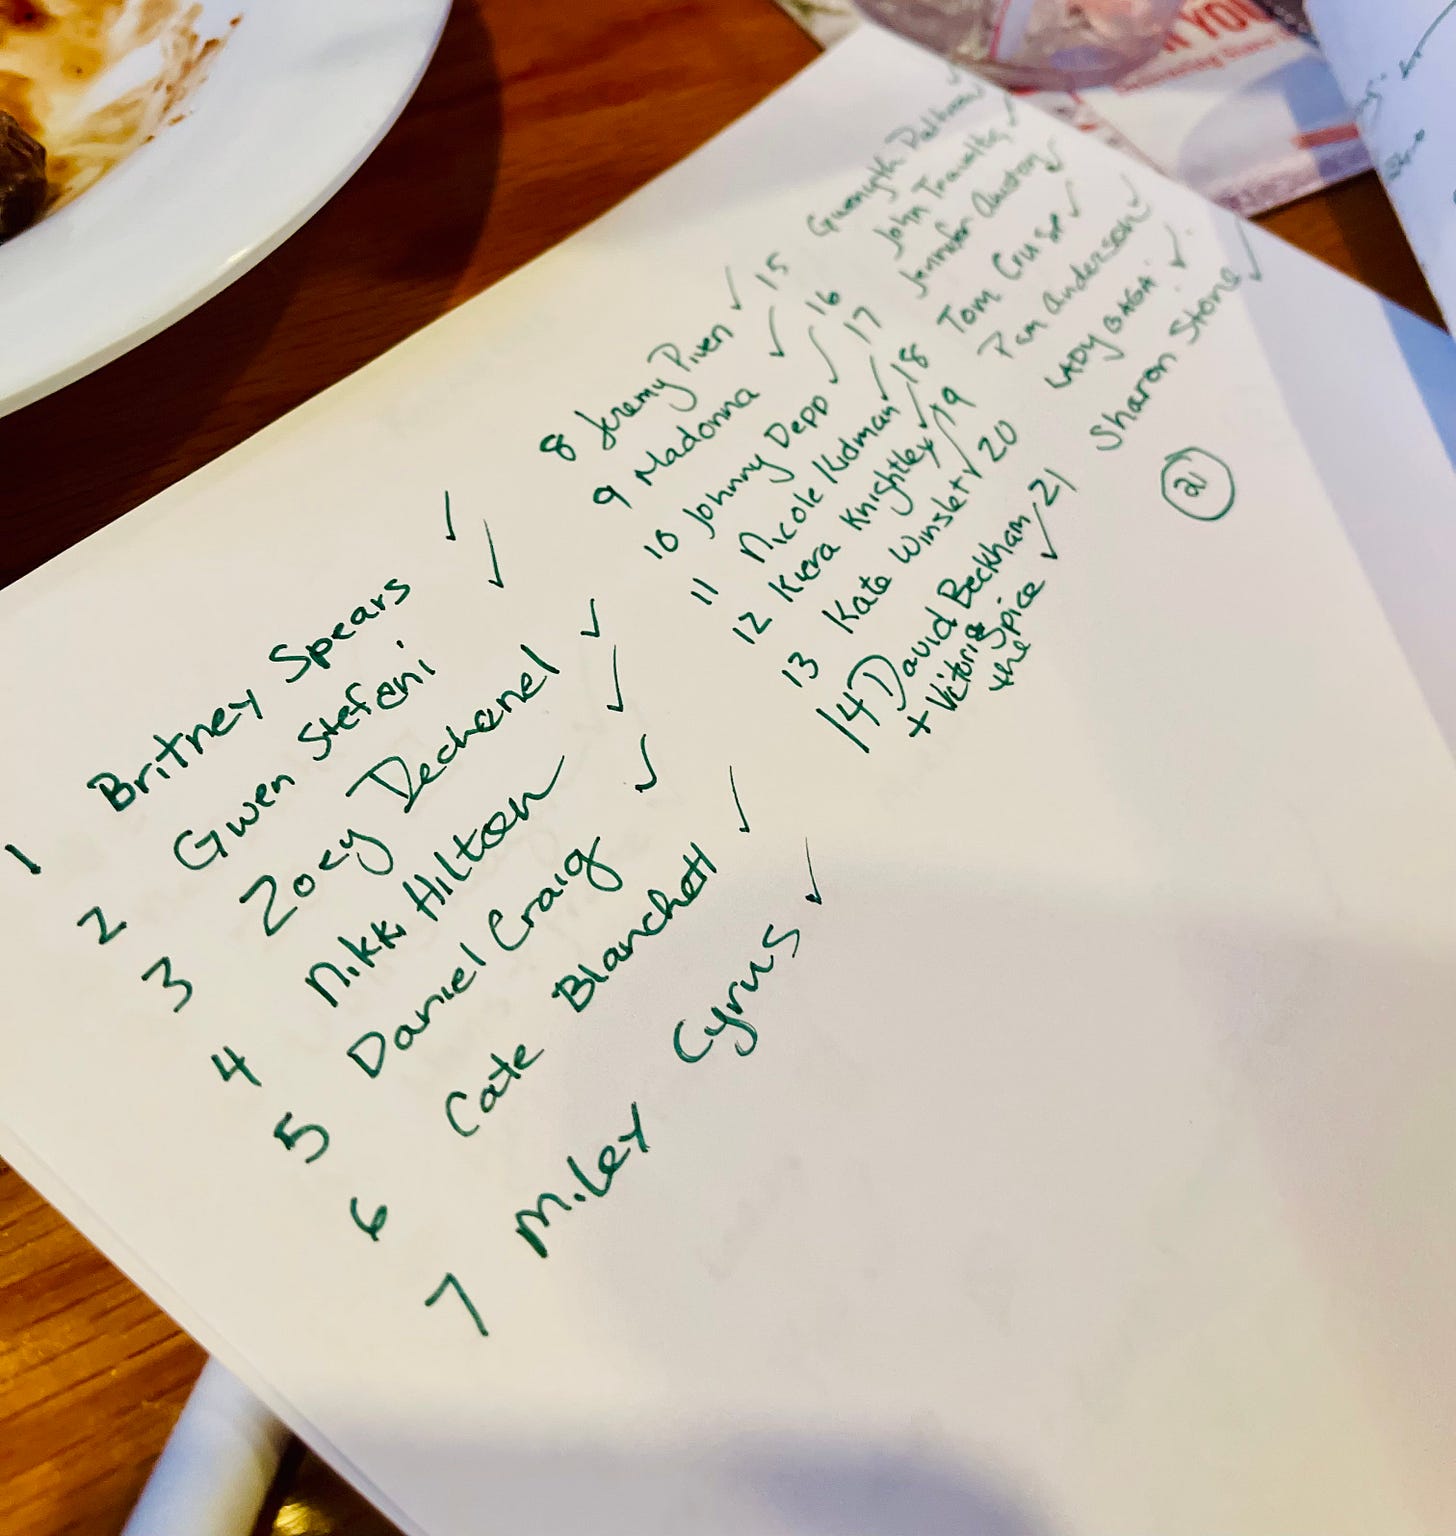 1 Britney Spears ✓
2 Gwen Stefani ✓
3 Zoey Dechanel ✓
4 Nikki Hilton ✓
5 Daniel Craig ✓
6 Cate Blanchett ✓
7 Miley Cyrus ✓
8 Jeremy Piven ✓
9 Madonna ✓
10 Johnny Depp ✓
11 Nicole Kidman ✓
12 Kiera Knightley ✓
13 Kate Winslet ✓
14 David Beckham
+ Victoria Spice ✓
the
15 Gwenyth Paltrow ✓
16 John Travolta ✓
17 Jennifer Aniston ✓
18 Tom Cruise ✓
19 Pam Anderson ✓
20 LADY GAGA ✓
21 Sharon Stone ✓
21
YOU